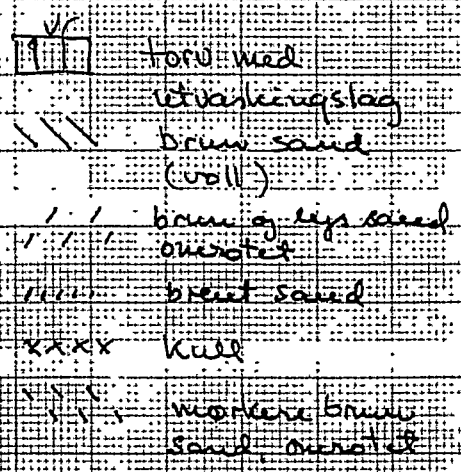 torv med
utvaskingslag
brun sand
(voll)
brun og lys sand
omrotet
brent sand
xxxx kull
mørkere brun
sand, omrotet